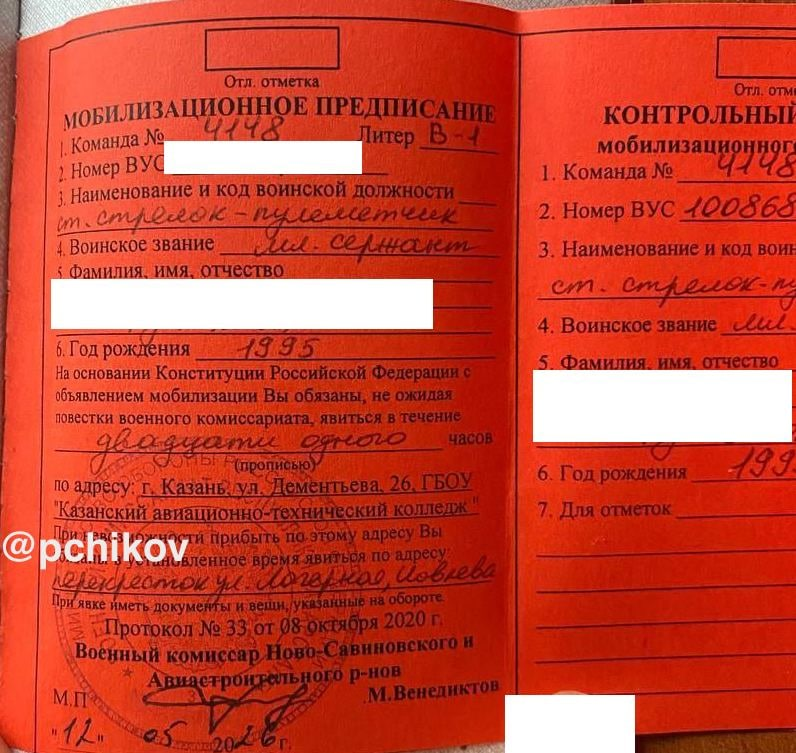 Отл. отметка
МОБИЛИЗАЦИОННОЕ ПРЕДПИСАНИЕ
1. Команда № 4148 Литер В-1
2. Номер ВУС
3. Наименование и код воинской должности
ст. стрелок-пулеметчик
4. Воинское звание мл. сержант
5. Фамилия, имя, отчество
6. Год рождения 1995
На основании Конституции Российской Федерации с
объявлением мобилизации Вы обязаны, не ожидая
повестки военного комиссариата, явиться в течение
двадцати одного часов
(прописью)
по адресу: г. Казань, ул. Дементьева, 26, ГБОУ
"Казанский авиационно-технический колледж"
При невозможности прибыть по этому адресу Вы
в установленное время явиться по адресу:
перекресток ул.
При явке иметь документы и вещи, указанные на обороте.
Протокол № 33 от 08 октября 2020 г.
Военный комиссар Ново-Савиновского и
Авиастроительного р-нов
М.П М.Венедиктов
"12" 05 2026 г.
@pchikov
Отл. отм
КОНТРОЛЬНЫЙ
мобилизационног
1. Команда № 4148
2. Номер ВУС 100868
3. Наименование и код воин
ст. стрелок-пу
4. Воинское звание мл.
5. Фамилия, имя, отчество
6. Год рождения 199
7. Для отметок